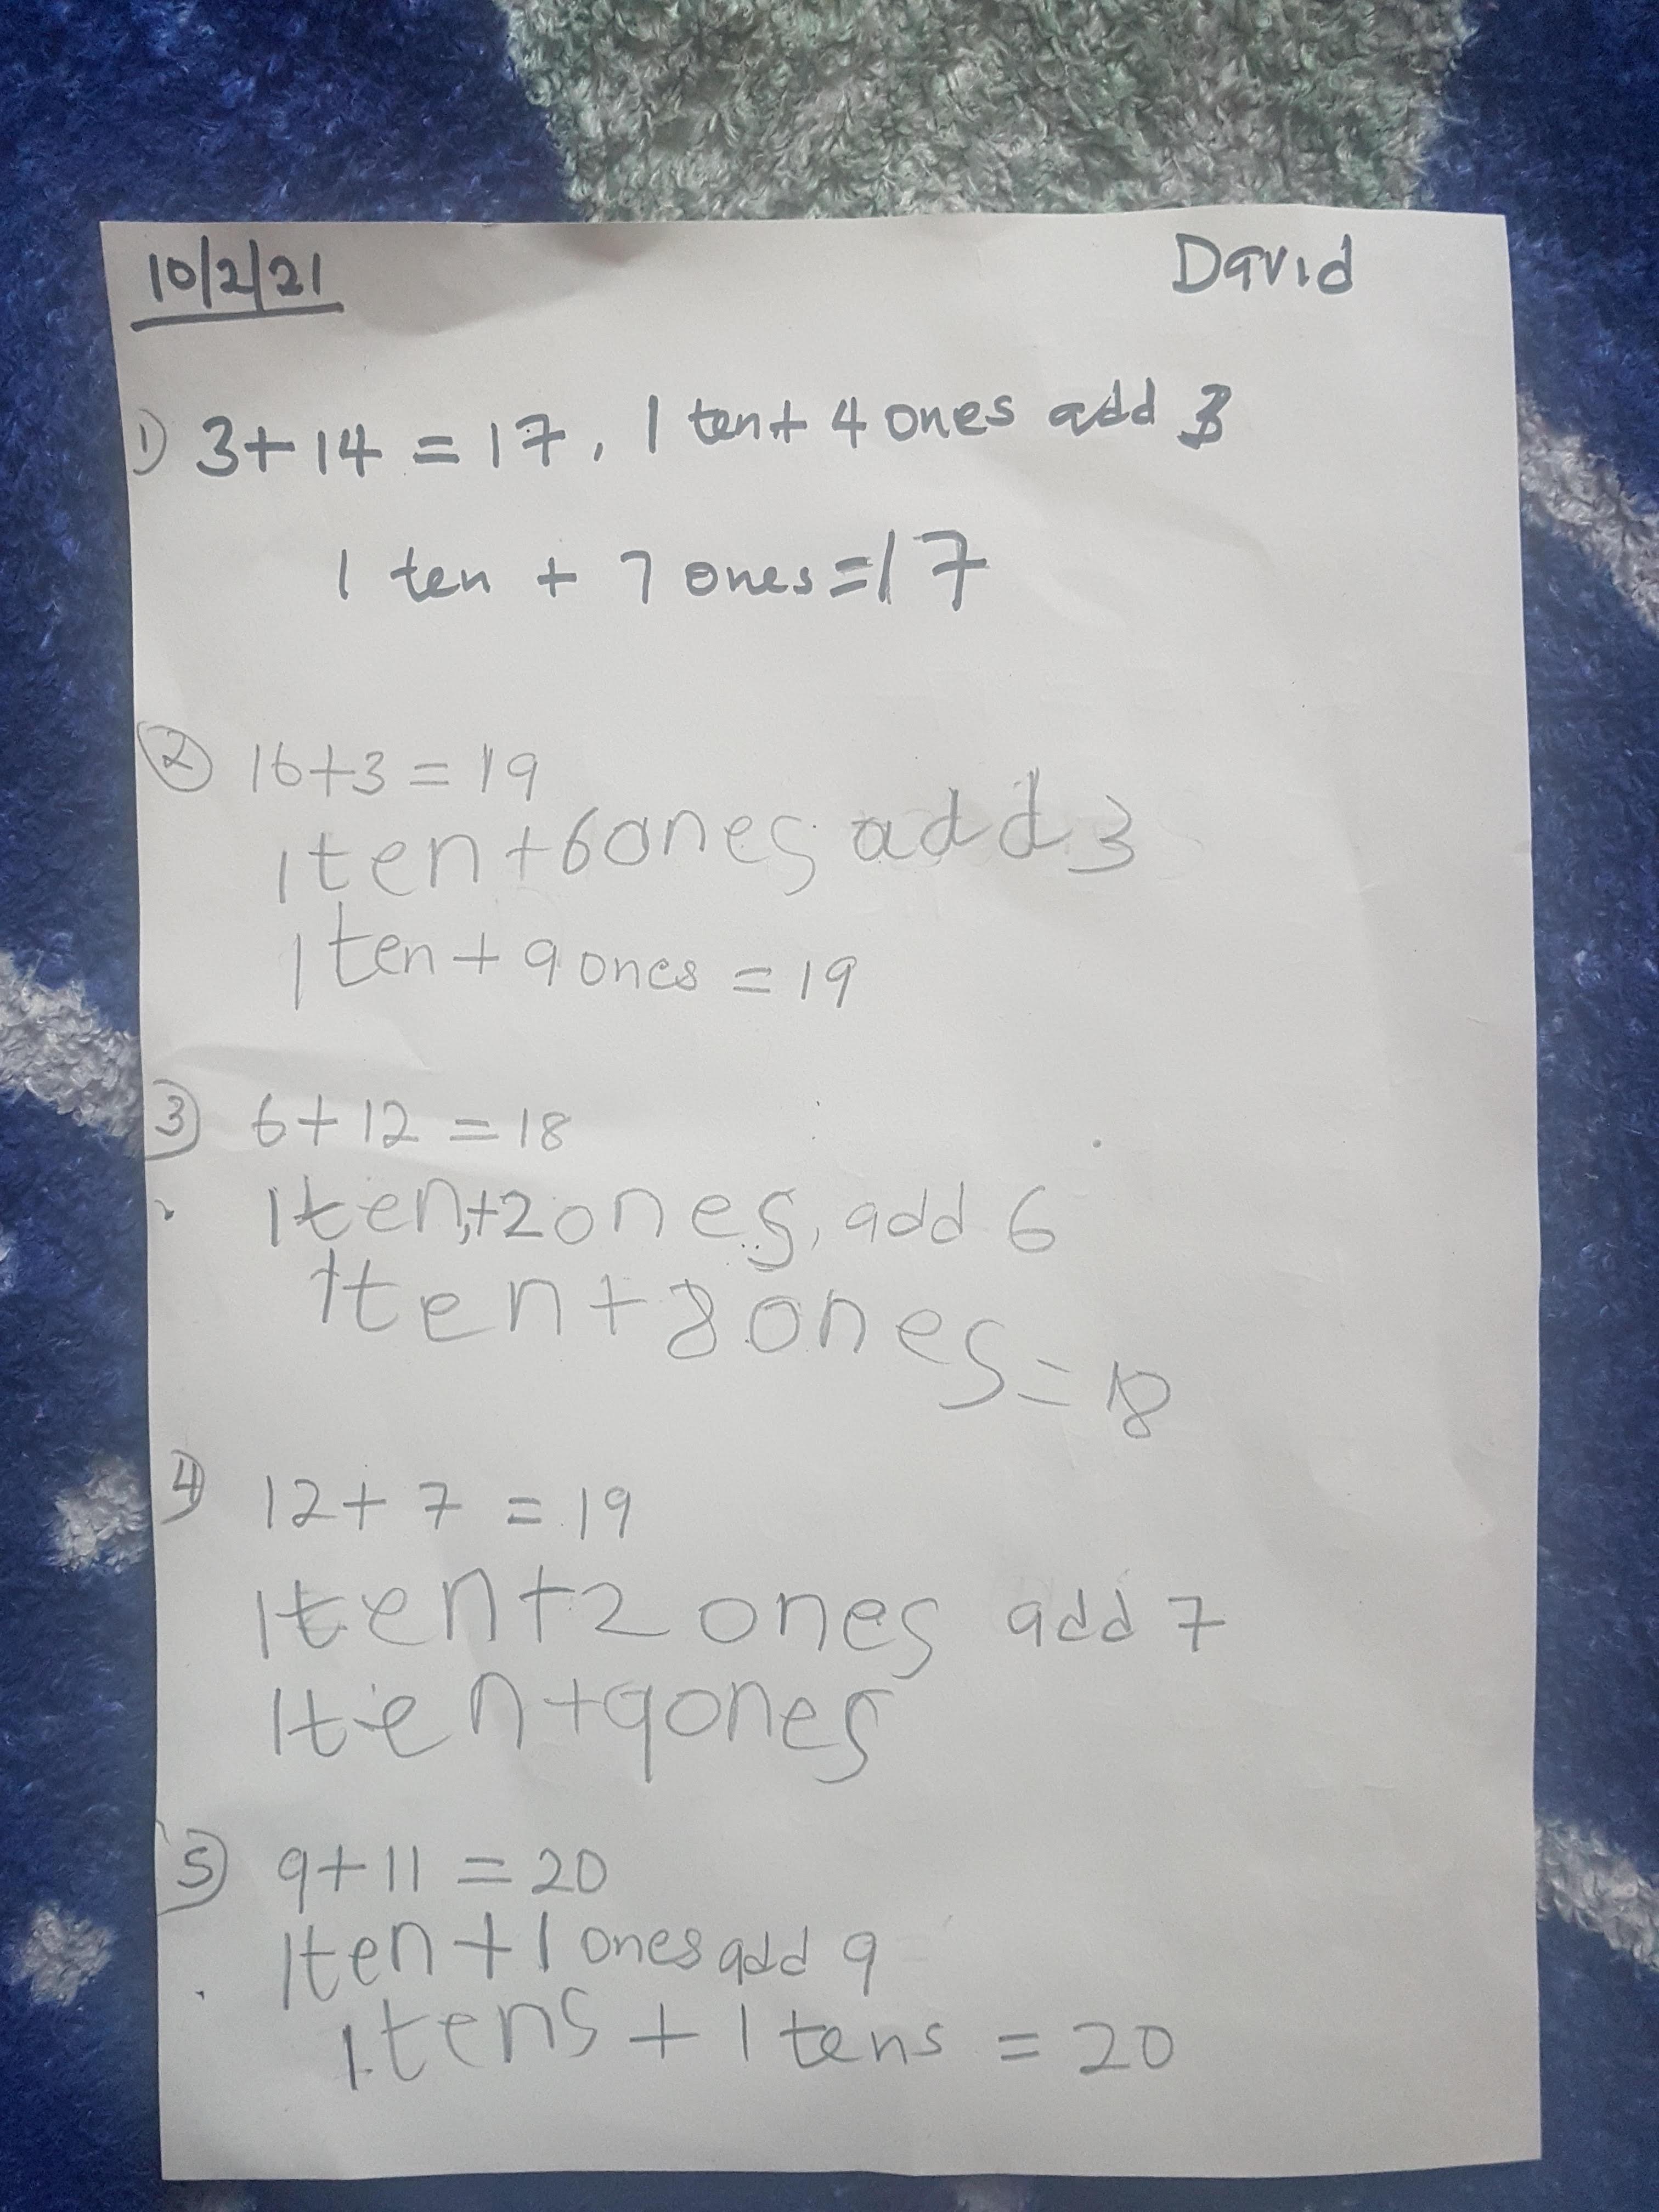 10/2/21 David
1) 3 + 14 = 17, 1 ten + 4 ones add 3
1 ten + 7 ones = 17
2 16 + 3 = 19
1 ten + 6 ones add 3
1 ten + 9 ones = 19
3 6 + 12 = 18
1 ten, + 2 ones, add 6
1 ten + 8 ones = 18
4 12 + 7 = 19
1 ten + 2 ones add 7
1 ten + 9 ones
5 9 + 11 = 20
1 ten + 1 ones add 9
1 tens + 1 tens = 20